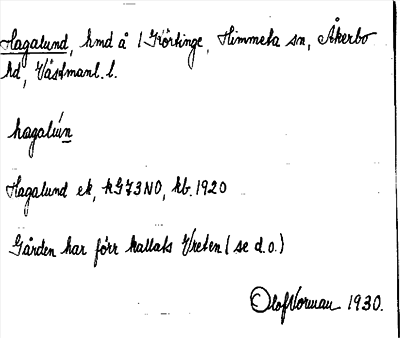 Hagalund, hmd å 1 Görtinge, Himmeta sn, Åkerbo
hd, Västmanl. l.
hagalún
Hagalund ek, kG73NO, kb. 1920
Gården har förr kallats Vreten (se d.o.)
Olof Norman 1930.